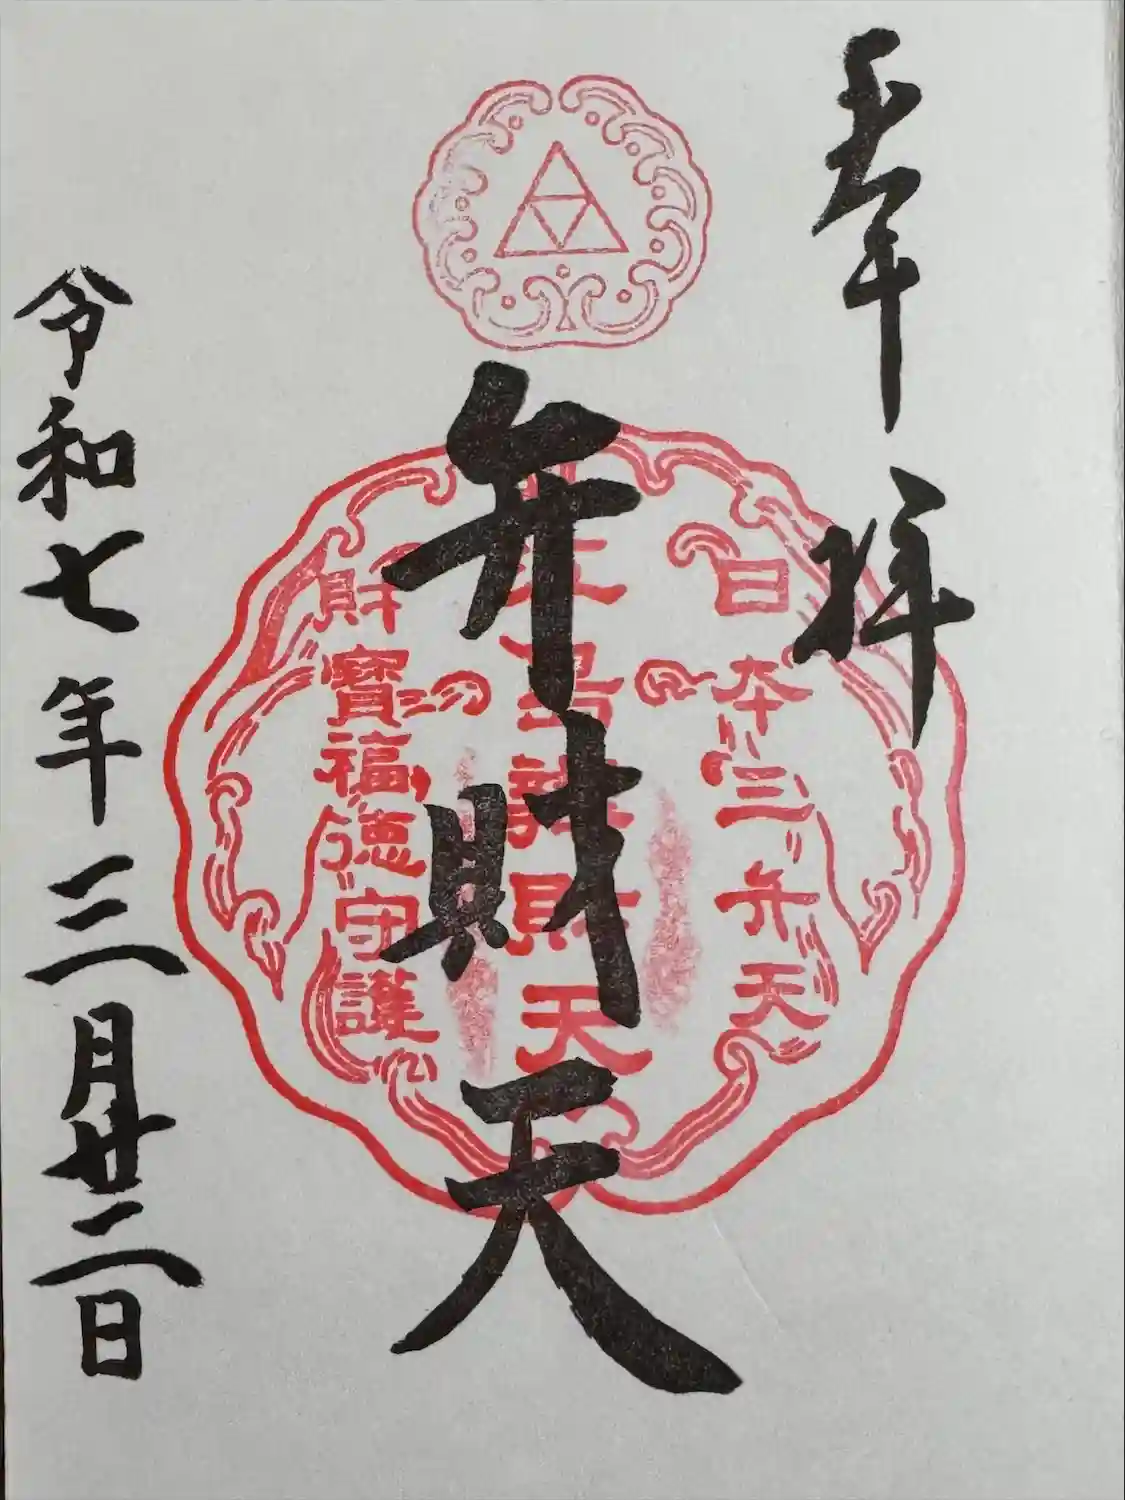 奉拝
日本三弁天
弁財天
天
財寶福徳守護
令和七年三月廿二日